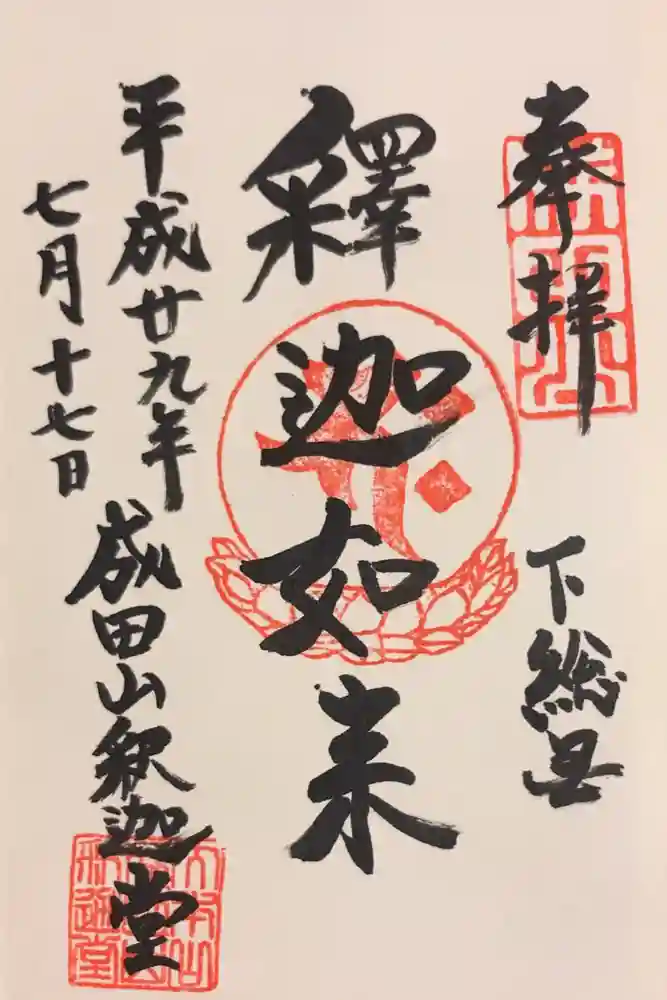 奉拝
下総国
釋迦如来
平成廿九年
七月十七日
成田山釈迦堂